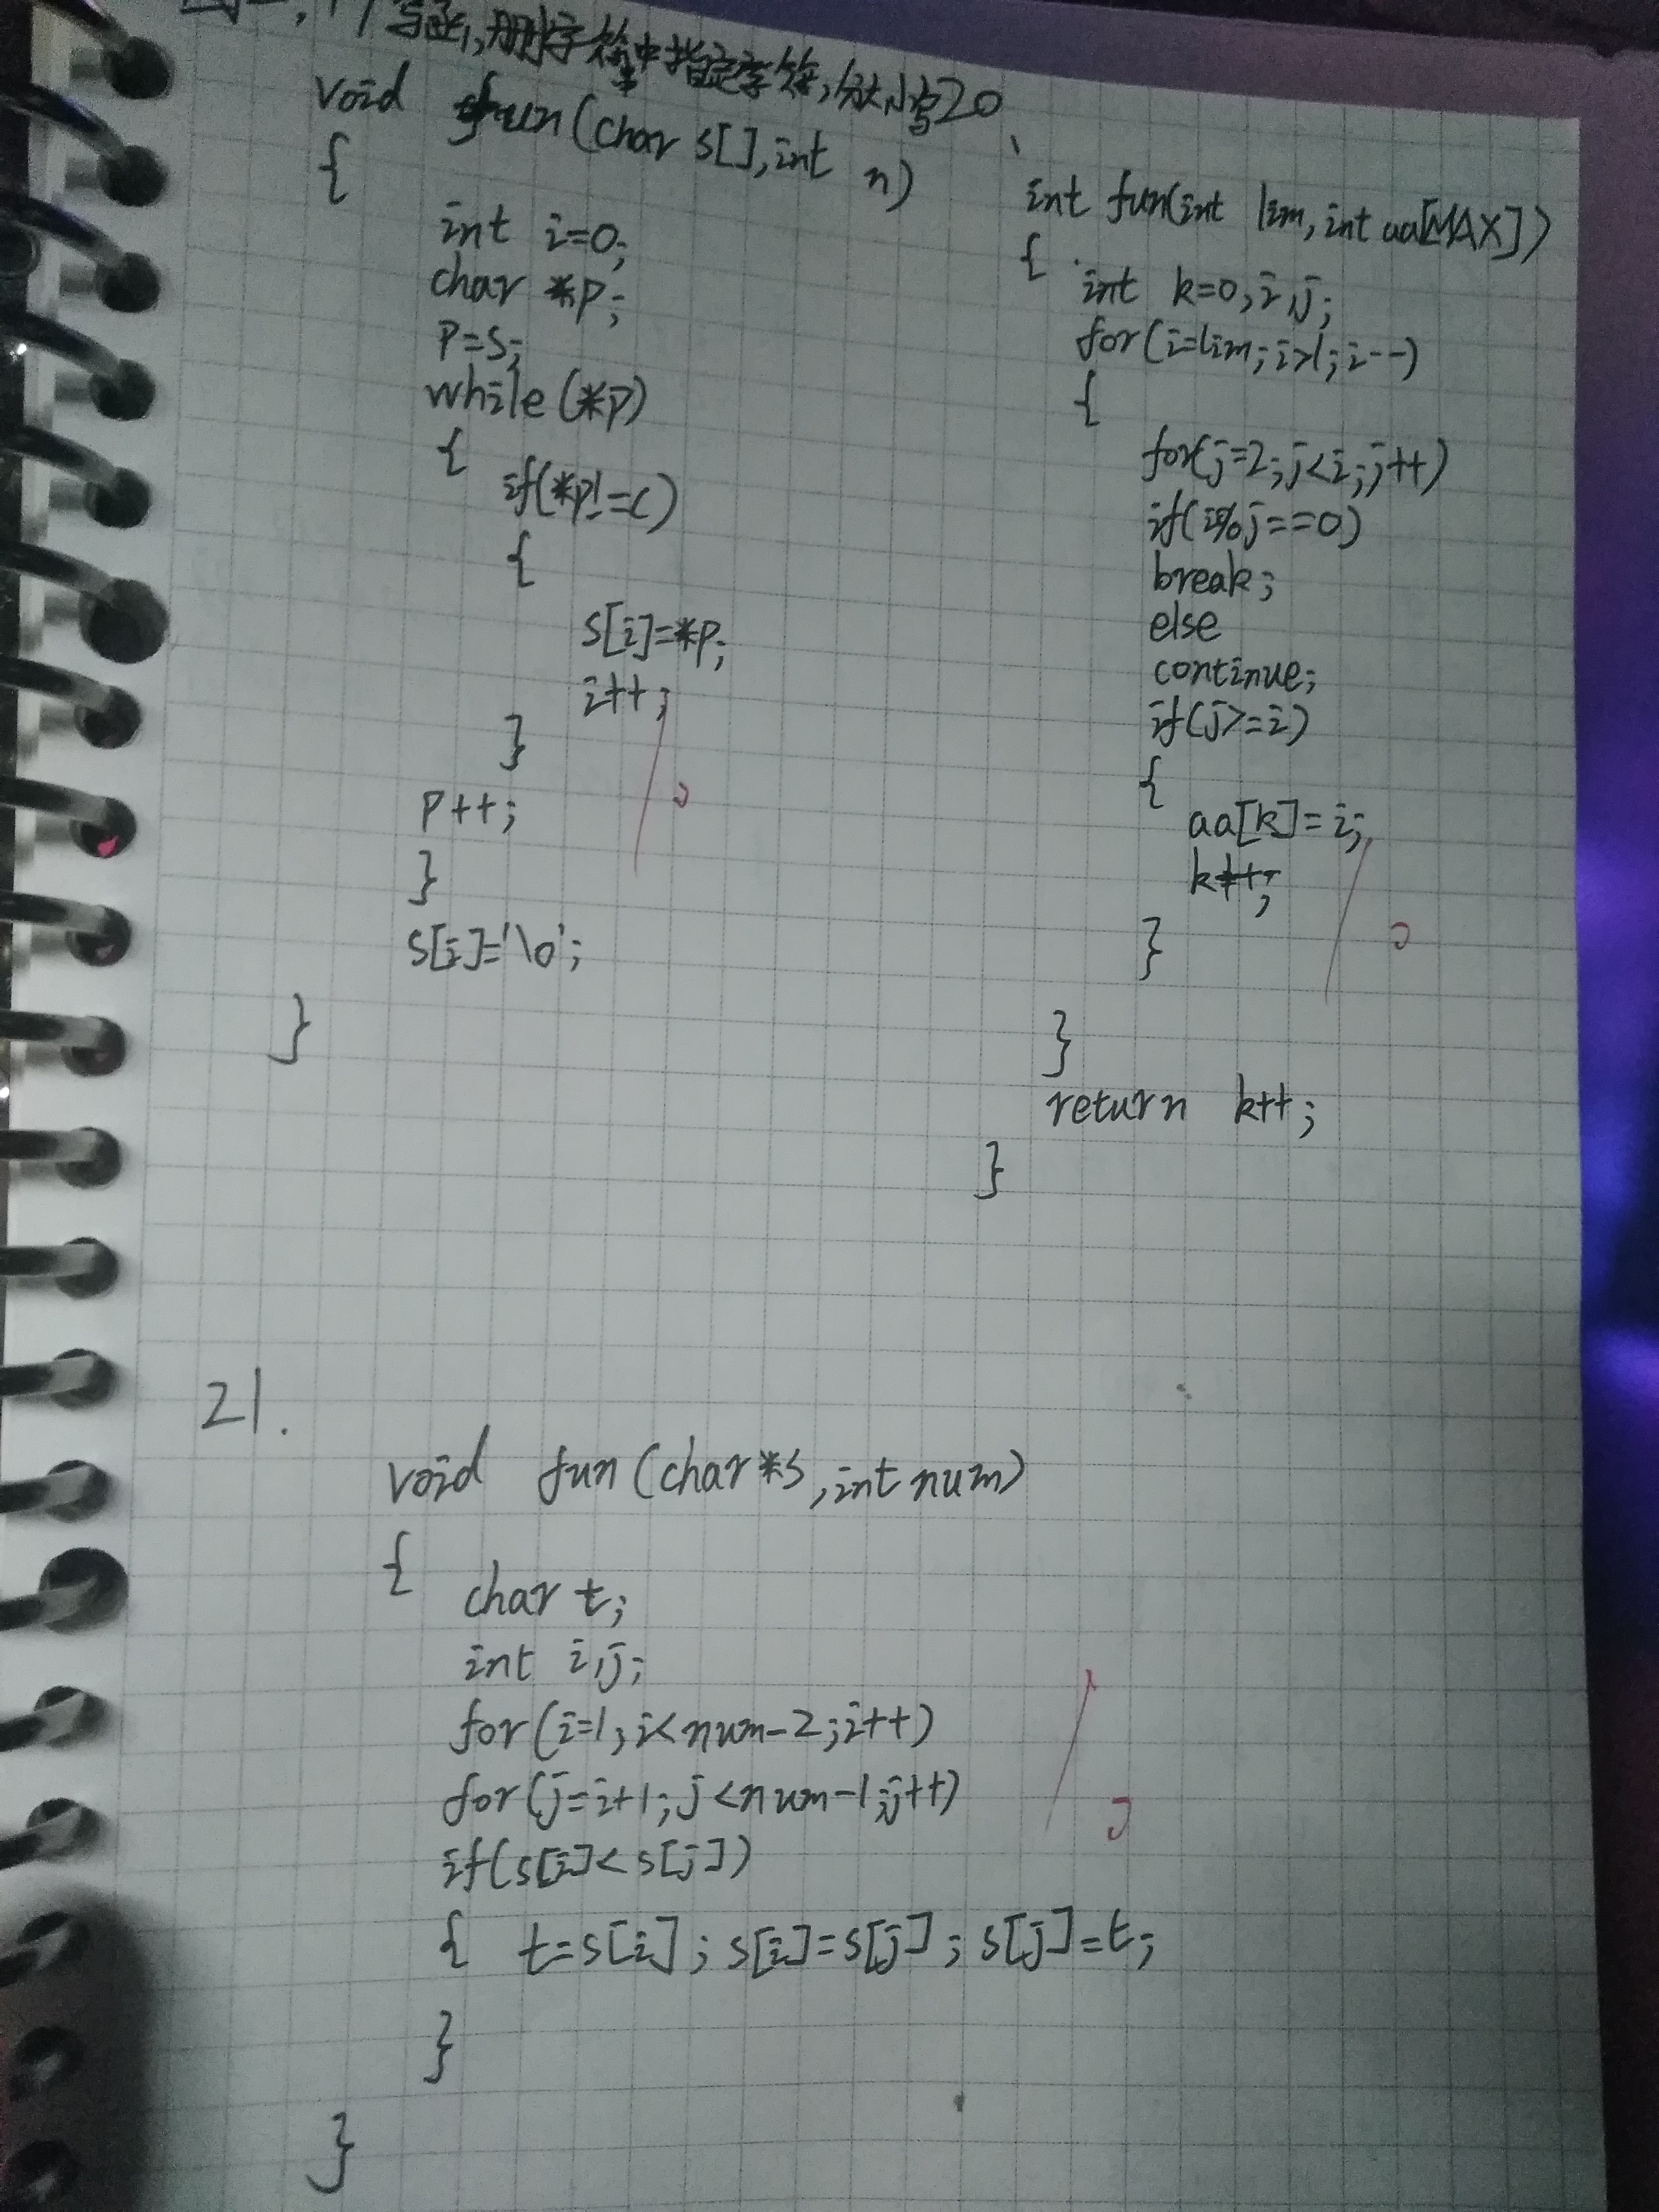 写函,删字符串中指定字符,分大小写
void fun(char s[],int n)
{
int i=0;
char *p;
p=s;
while(*p)
{
if(*p!=c)
{
s[i]=*p;
i++;
}
p++;
}
s[i]='\0';
}
20、
int fun(int lim,int aa[MAX])
{
int k=0,i,j;
for(i=lim;i>1;i--)
{
for(j=2;j<i;j++)
if(i%j==0)
break;
else
continue;
if(j>=i)
{
aa[k]=i;
k++;
}
}
return k++;
}
21.
void fun(char*s,int num)
{
char t;
int i,j;
for(i=1;i<num-2;i++)
for(j=i+1;j<num-1;j++)
if(s[i]<s[j])
{ t=s[i];s[i]=s[j];s[j]=t;
}
}